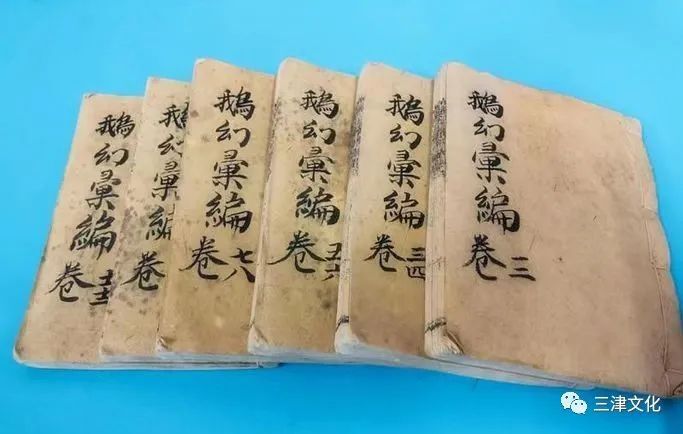 鵝幻彙編 卷十一十二
鵝幻彙編 卷
鵝幻彙編 卷七八
鵝幻彙編 卷五六
鵝幻彙編 卷三四
鵝幻彙編 卷一二
三津文化